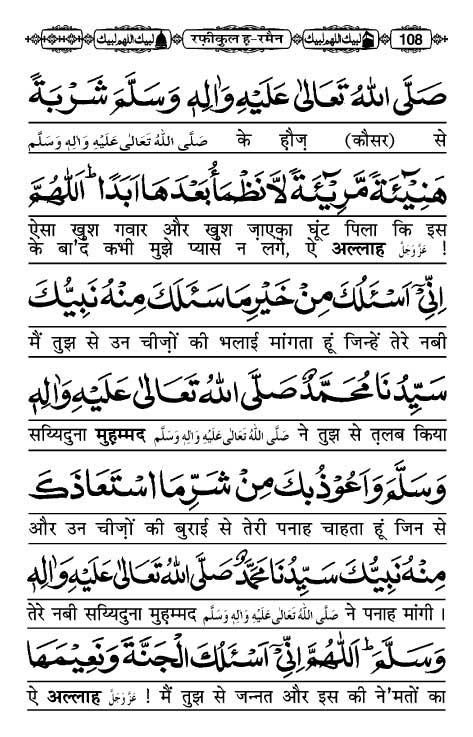 لبيك اللهم لبيك रफ़ीकुल ह-रमैन لبيك اللهم لبيك 108
صَلَّى اللهُ تَعَالٰى عَلَيْهِ وَاٰلِهٖ وَسَلَّمَ شَرْبَةً
صَلَّى اللهُ تَعَالٰى عَلَيْهِ وَاٰلِهٖ وَسَلَّم के हौज़ (कौसर) से
هَنِيْٓئَةً مَّرِيْٓئَةً لَّا نَظْمَأُ بَعْدَهَا اَبَدًا ؕ اَللّٰهُمَّ
ऐसा खुश गवार और खुश ज़ाएका घूंट पिला कि इस
के बा'द कभी मुझे प्यास न लगे, ऐ अल्लाह عَزَّوَجَلَّ !
اِنِّيْٓ اَسْئَلُكَ مِنْ خَيْرِ مَا سَئَلَكَ مِنْهُ نَبِيُّكَ
मैं तुझ से उन चीज़ों की भलाई मांगता हूं जिन्हें तेरे नबी
سَيِّدُنَا مُحَمَّدٌ صَلَّى اللهُ تَعَالٰى عَلَيْهِ وَاٰلِهٖ
सय्यिदुना मुहम्मद صَلَّى اللهُ تَعَالٰى عَلَيْهِ وَاٰلِهٖ وَسَلَّم ने तुझ से त़लब किया
وَسَلَّمَ وَاَعُوْذُ بِكَ مِنْ شَرِّ مَا اسْتَعَاذَكَ
और उन चीज़ों की बुराई से तेरी पनाह चाहता हूं जिन से
مِنْهُ نَبِيُّكَ سَيِّدُنَا مُحَمَّدٌ صَلَّى اللهُ تَعَالٰى عَلَيْهِ وَاٰلِهٖ
तेरे नबी सय्यिदुना मुहम्मद صَلَّى اللهُ تَعَالٰى عَلَيْهِ وَاٰلِهٖ وَسَلَّم ने पनाह मांगी ।
وَسَلَّمَ ؕ اَللّٰهُمَّ اِنِّيْٓ اَسْئَلُكَ الْجَنَّةَ وَنَعِيْمَهَا
ऐ अल्लाह عَزَّوَجَلَّ ! मैं तुझ से जन्नत और इस की ने'मतों का